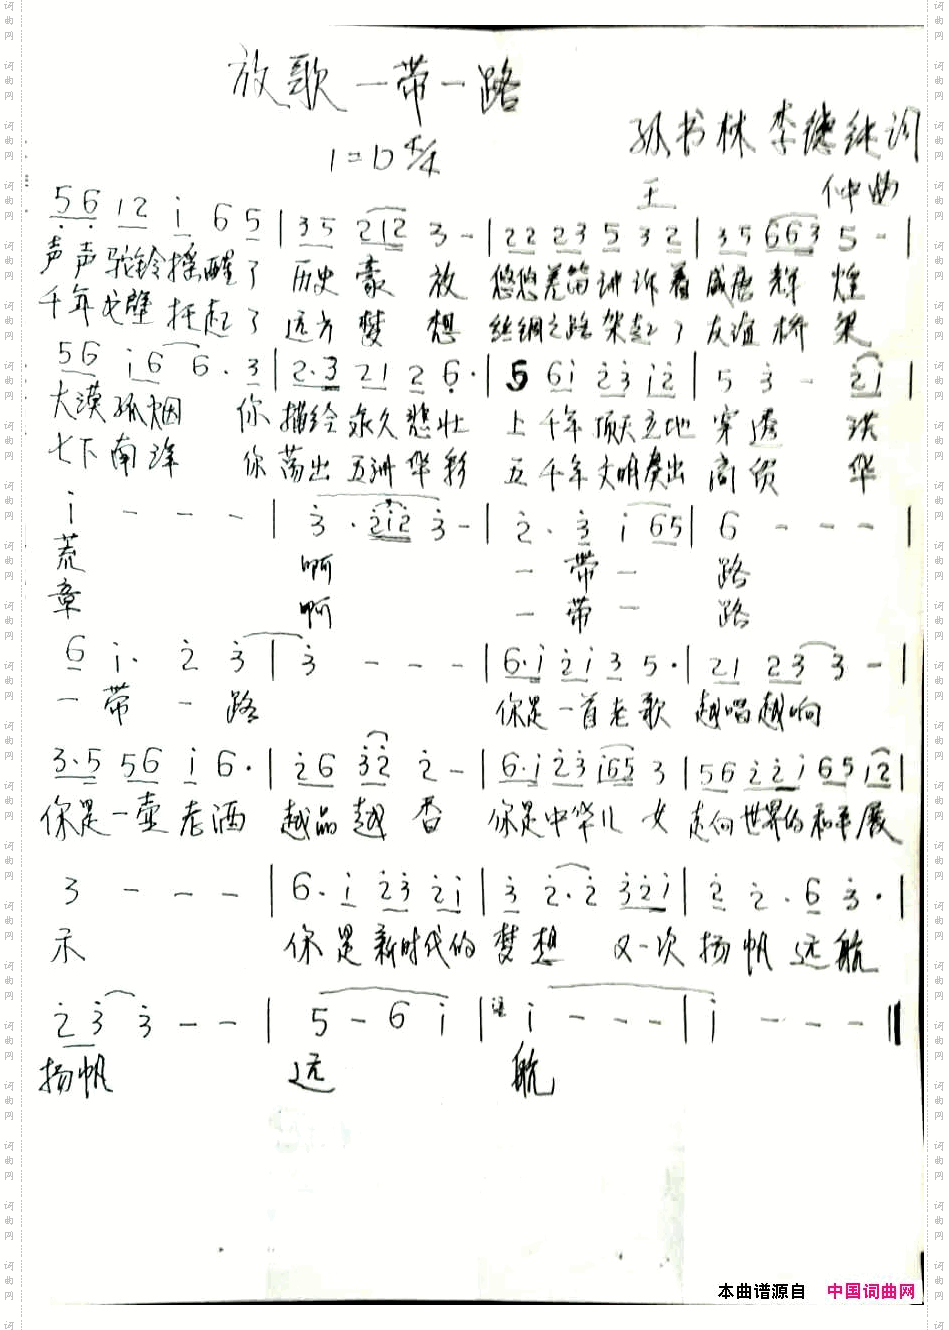 放歌一带一路
1=D 4/4
孙书林 李德纯词
王 仲曲
5 6 1 2 i 6 5 | 3 5 2 1 2 3 - | 2 2 2 3 5 3 2 | 3 5 6 6 3 5 - |
声声驼铃摇醒了 历史豪放 悠悠羌笛讲诉着盛唐辉煌
千年戈壁托起了远方梦想 丝绸之路架起了友谊桥梁
5 6 i 6 6 . 3 | 2 . 3 2 1 2 6 . | 5 6 i 2 3 i 2 | 5 3 - 2 i |
大漠孤烟 你描绘永久悲壮 上千年顶天立地穿透 洪
七下南洋 你荡出五洲华彩 五千年文明奏出高质 华
i - - - | 3 . 2 i 2 3 - | 2 . 3 i 6 5 | 6 - - - |
荒 啊 一带一 路
章 啊 一带一 路
6 i . 2 3 | 3 - - - | 6 . i 2 i 3 5 . | 2 1 2 3 3 - |
一带一路 你是一首老歌 越唱越响
3 . 5 5 6 i 6 . | 2 6 3 2 2 - | 6 . i 2 3 i 6 5 3 | 5 6 2 2 i 6 5 i 2 |
你是一壶老酒 越品越香 你是中华儿女 走向世界的和平展
3 - - - | 6 . i 2 3 2 i | 3 2 . 2 3 2 i | 2 2 . 6 3 . |
示 你是新时代的 梦想 又一次扬帆远航
2 3 3 - - | 5 - 6 i | i - - - | i - - - ‖
扬帆 远 航
本曲谱源自 中国词曲网